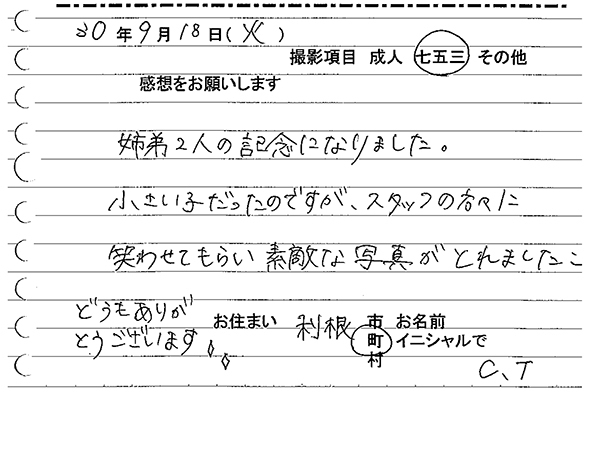 30年9月18日(火)
撮影項目 成人 七五三 その他
感想をお願いします
姉弟2人の記念になりました。
小さい子だったのですが、スタッフの方々に
笑わせてもらい素敵な写真がとれましたこ
どうもありが
とうございます
お住まい 利根 市町村 お名前 イニシャルで
C、T